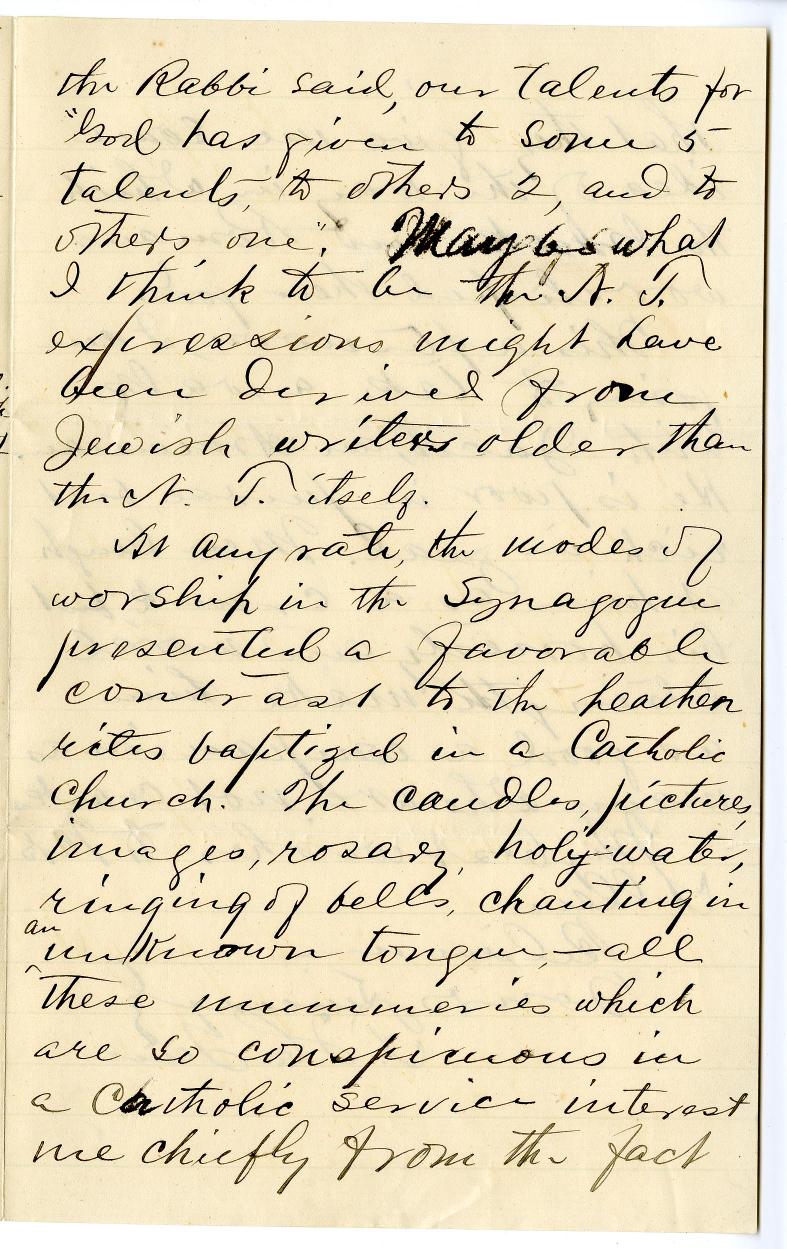 the Rabbi said, our talents for
"God has given to some 5
talents, to others 2, and to
others, one". May be what
I think to be the N. T.
expressions might have
been derived from
Jewish writers older than
the N. T. itself.
At any rate, the modes of
worship in the Synagogue
presented a favorable
contrast to the heathen
rites baptized in a Catholic
church. The candles, pictures,
images, rosary, holy-water,
ringing of bells, chanting in
an unknown tongue,—all
these mummeries which
are so conspicuous in
a Catholic service interest
me chiefly from the fact